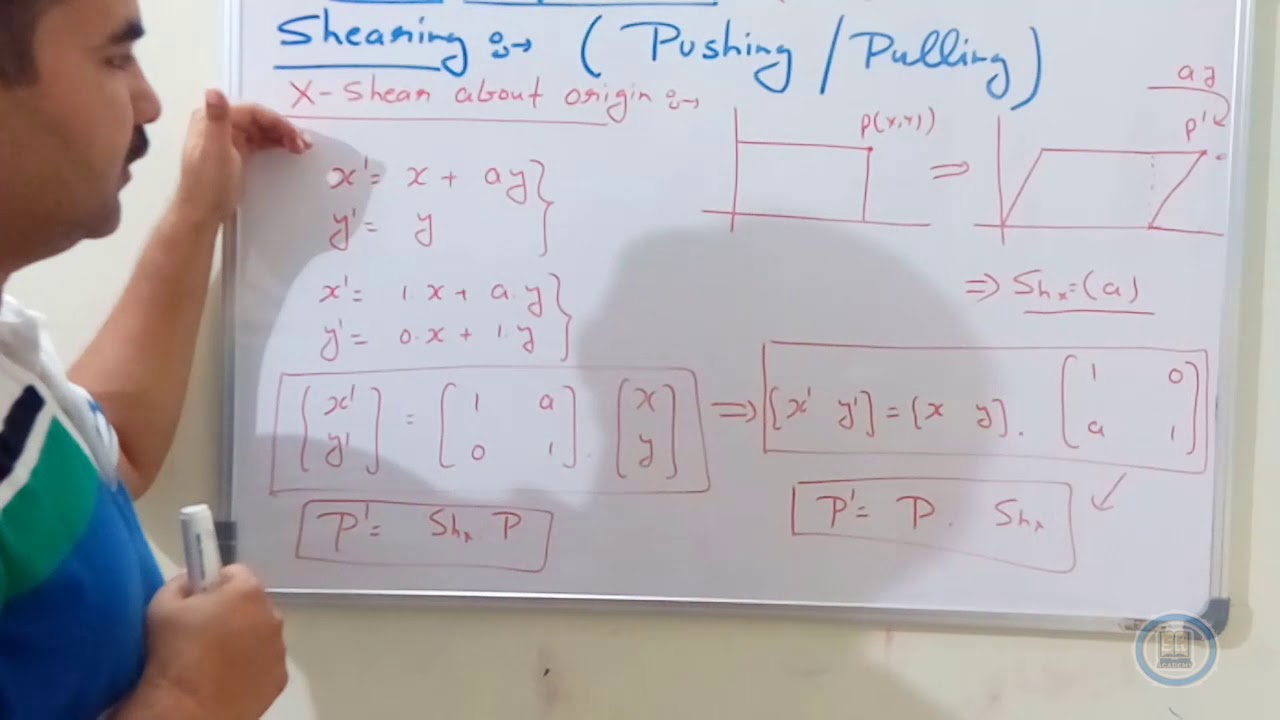 Shearing :→ ( Pushing / Pulling )
X-Shear about origin :→
x' = x + ay
y' = y
x' = 1.x + a.y
y' = 0.x + 1.y
[x' y'] = [1 a 0 1] . [x y]
P' = Shx. P
P(x,y)
⇒
ay
P'
⇒ Shx = (a)
⇒ [x' y'] = [x y]. [1 0 a 1]
P' = P. Shx
ACADEMY